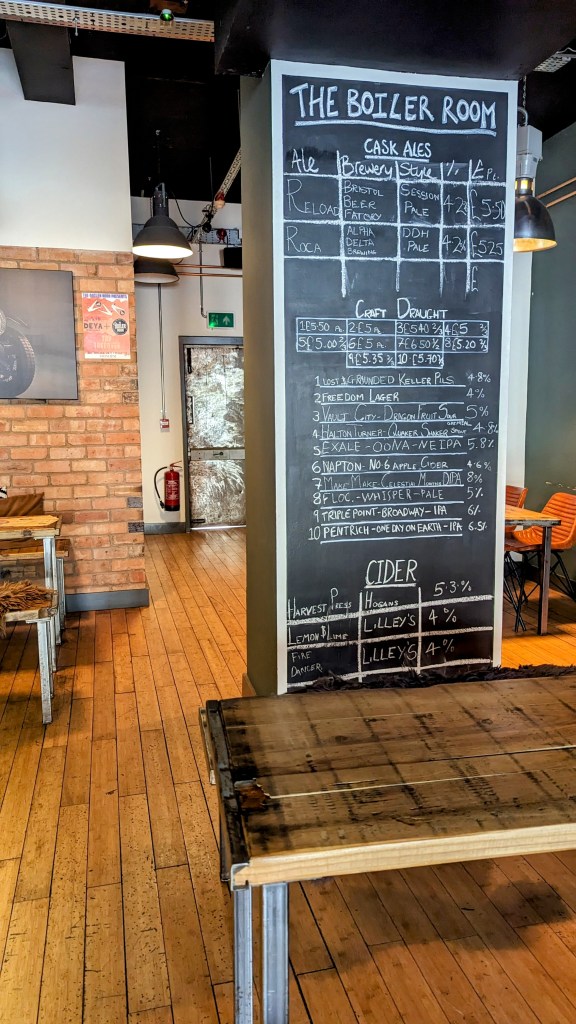 THE BOILER ROOM
CASK ALES
Ale Brewery Style % £ Pt.
RELOAD BRISTOL BEER FACTORY SESSION PALE 4.2% £5.50
ROCA ALPHA DELTA BREWING DDH PALE 4.2% £5.25
£
CRAFT DRAUGHT
1 £5.50 2 £5 3 £5.40 ½ 4 £5 ½
5 £5.00 ½ 6 £5 7 £6.50 ½ 8 £5.20 ½
9 £5.35 ½ 10 £5.70 ½
1 LOST & GROUNDED KELLER PILS 4.8%
2 FREEDOM LAGER 4%
3 VAULT CITY - DRAGON FRUIT SOUR 5%
4 HALTON TURNER - QUAKER SHAKER OATMEAL STOUT 4.8%
5 EXALE - OONA - NEIPA 5.8%
6 NAPTON - NO.6 APPLE CIDER 4.6%
7 MAKE MAKE CELESTIAL MOTION DIPA 8%
8 FLOC. - WHISPER - PALE 5%
9 TRIPLE POINT - BROADWAY - IPA 6%
10 PENTRICH - ONE DAY ON EARTH - IPA 6.5%
CIDER
HARVEST PRESS HOGANS 5.3%
LEMON & LIME LILLEY'S 4%
FIRE DANCER LILLEY'S 4%
DEYA